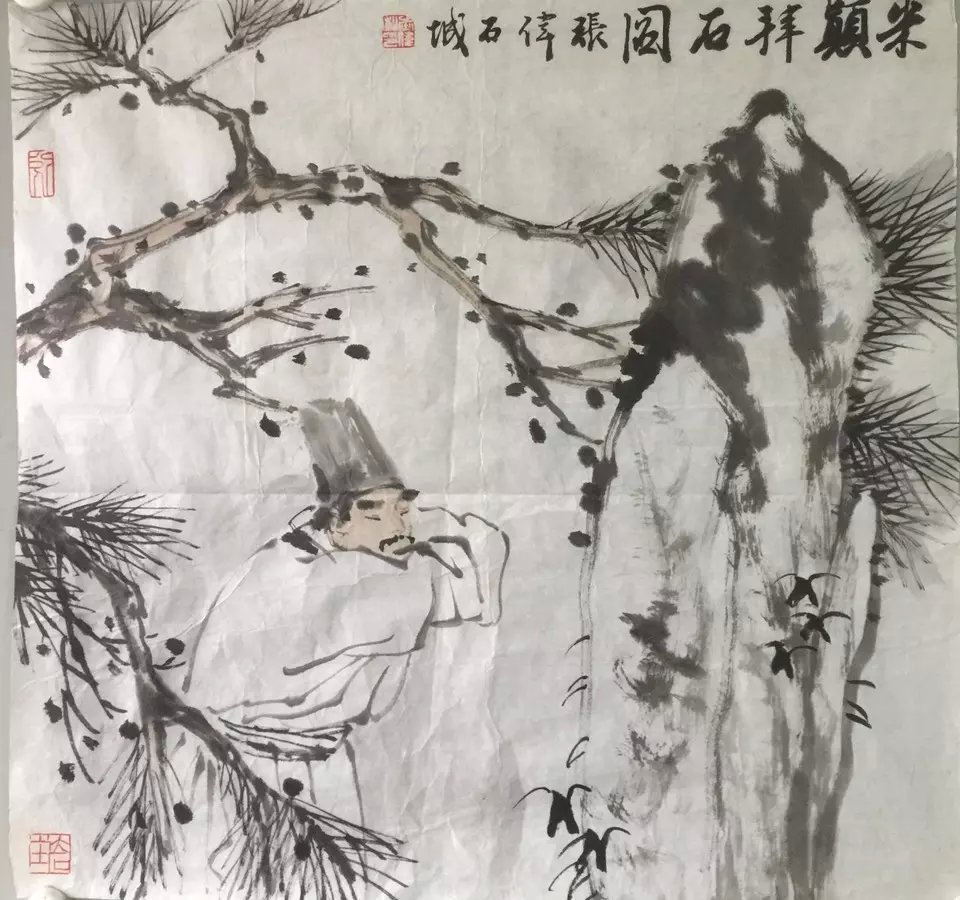 米顛拜石圖張偉石城